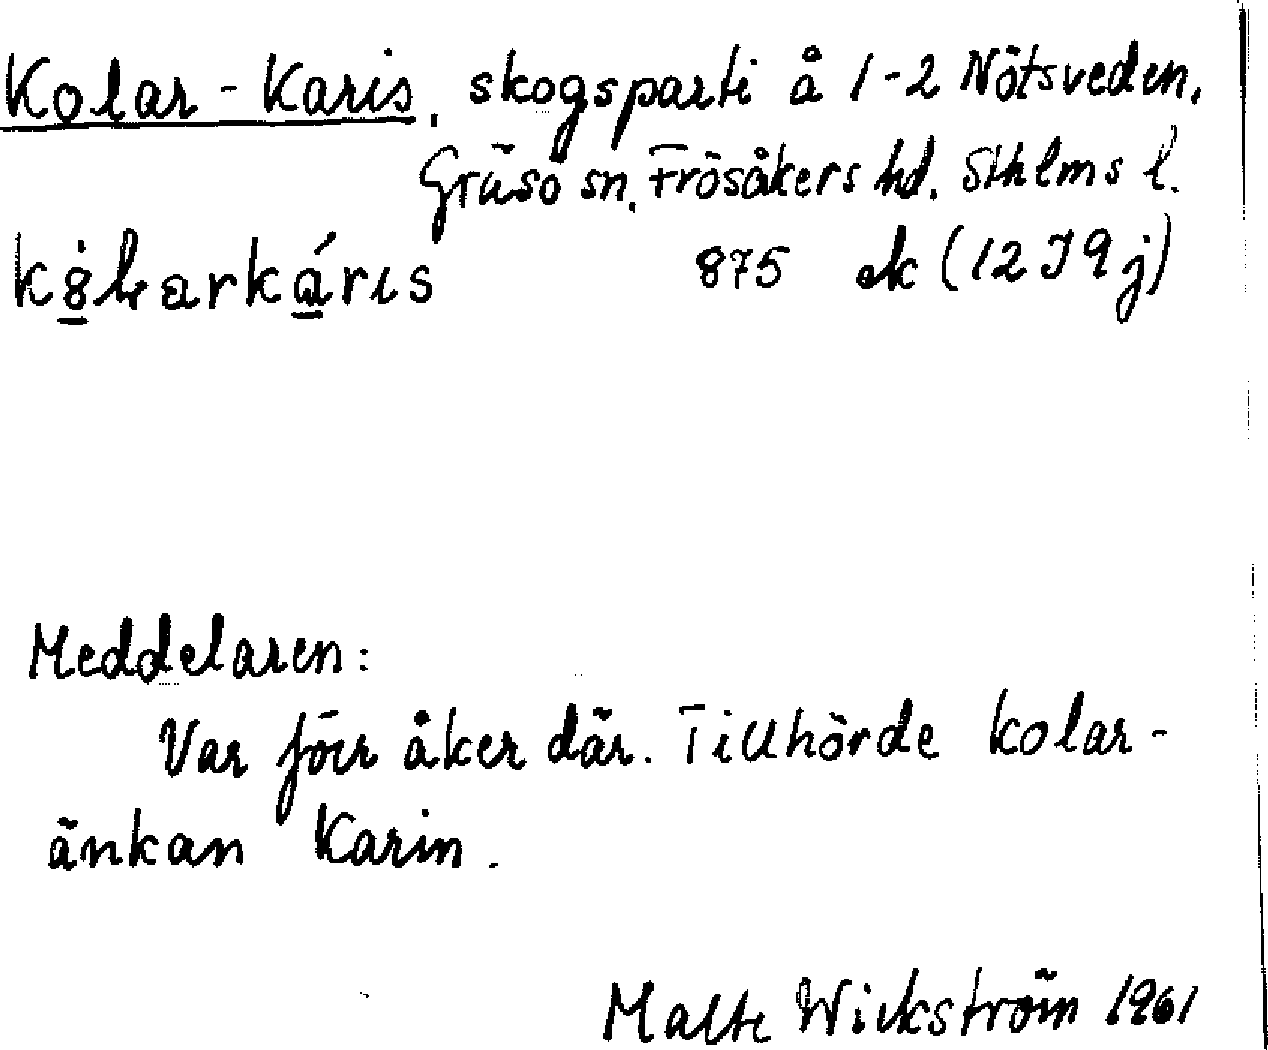 Kolar-Karis, skogsparti å 1-2 Nötsveden,
Gräsö sn. Frösåkers hd. Sthlms l.
875 ek (12 I 9 j)
Meddelaren:
Var förr åker där. Tillhörde kolar-
änkan Karin.
Malte Wickström 1961